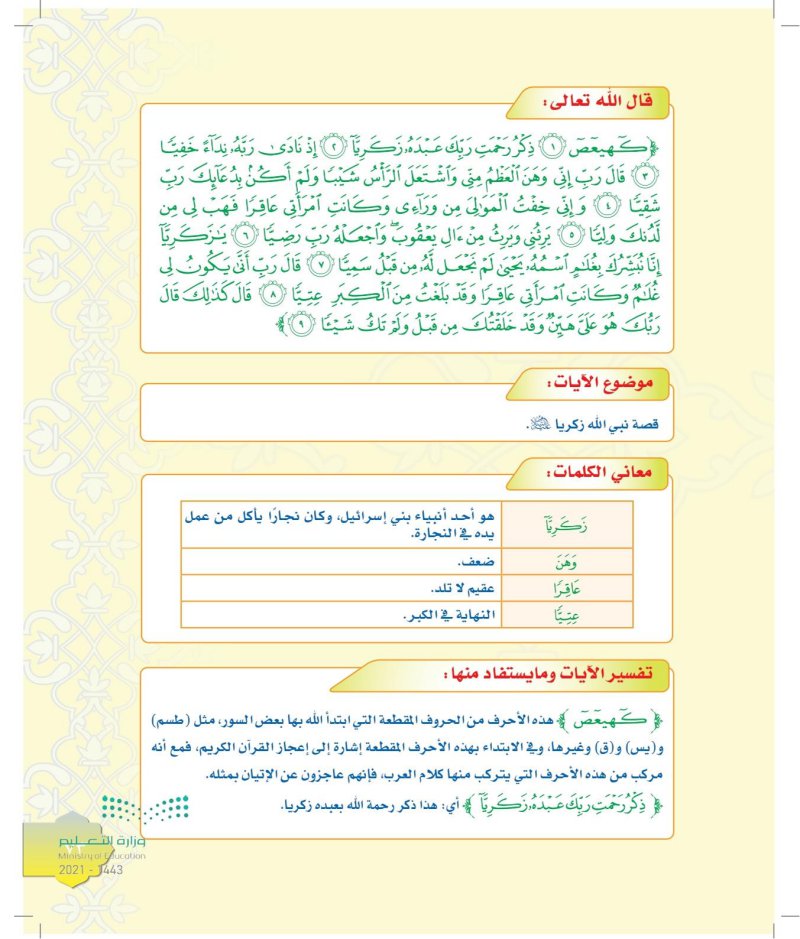 قال الله تعالى:
﴿ كٓهيعٓصٓ ١ ذِكْرُ رَحْمَتِ رَبِّكَ عَبْدَهُۥ زَكَرِيَّآ ٢ إِذْ نَادَىٰ رَبَّهُۥ نِدَآءً خَفِيًّا
٣ قَالَ رَبِّ إِنِّى وَهَنَ ٱلْعَظْمُ مِنِّى وَٱشْتَعَلَ ٱلرَّأْسُ شَيْبًا وَلَمْ أَكُنۢ بِدُعَآئِكَ رَبِّ
شَقِيًّا ٤ وَإِنِّى خِفْتُ ٱلْمَوَٰلِىَ مِن وَرَآءِى وَكَانَتِ ٱمْرَأَتِى عَاقِرًا فَهَبْ لِى مِن
لَّدُنكَ وَلِيًّا ٥ يَرِثُنِى وَيَرِثُ مِنْ ءَالِ يَعْقُوبَ ۖ وَٱجْعَلْهُ رَبِّ رَضِيًّا ٦ يَٰزَكَرِيَّآ
إِنَّا نُبَشِّرُكَ بِغُلَٰمٍ ٱسْمُهُۥ يَحْيَىٰ لَمْ نَجْعَل لَّهُۥ مِن قَبْلُ سَمِيًّا ٧ قَالَ رَبِّ أَنَّىٰ يَكُونُ لِى
غُلَٰمٌ وَكَانَتِ ٱمْرَأَتِى عَاقِرًا وَقَدْ بَلَغْتُ مِنَ ٱلْكِبَرِ عِتِيًّا ٨ قَالَ كَذَٰلِكَ قَالَ
رَبُّكَ هُوَ عَلَىَّ هَيِّنٌ وَقَدْ خَلَقْتُكَ مِن قَبْلُ وَلَمْ تَكُ شَيْـًٔا ٩ ﴾
موضوع الآيات:
قصة نبي الله زكريا ﷺ.
معاني الكلمات:
زَكَرِيَّآ هو أحد أنبياء بني إسرائيل، وكان نجارًا يأكل من عمل
يده في النجارة.
وَهَنَ ضعف.
عَاقِرًا عقيم لا تلد.
عِتِيًّا النهاية في الكبر.
تفسير الآيات ومايستفاد منها:
﴿ كٓهيعٓصٓ ﴾ هذه الأحرف من الحروف المقطعة التي ابتدأ الله بها بعض السور، مثل (طسم)
و(يس) و(ق) وغيرها، وفي الابتداء بهذه الأحرف المقطعة إشارة إلى إعجاز القرآن الكريم، فمع أنه
مركب من هذه الأحرف التي يتركب منها كلام العرب، فإنهم عاجزون عن الإتيان بمثله.
﴿ ذِكْرُ رَحْمَتِ رَبِّكَ عَبْدَهُۥ زَكَرِيَّآ ﴾ أي: هذا ذكر رحمة الله بعبده زكريا.
وزارة التعليم
Ministry of Education
2021 - 1443